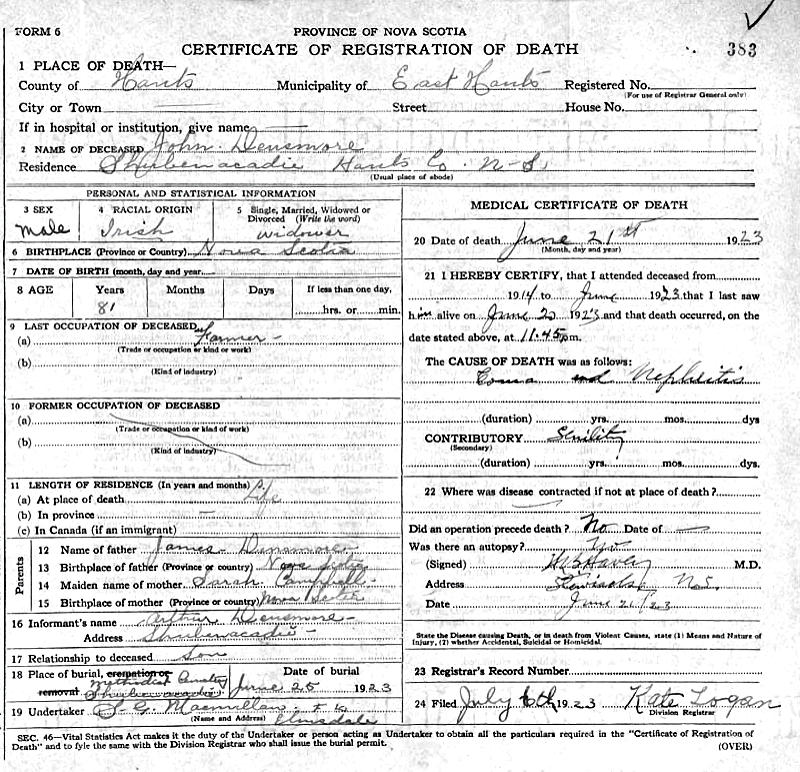 FORM 6
PROVINCE OF NOVA SCOTIA
CERTIFICATE OF REGISTRATION OF DEATH
383
1 PLACE OF DEATH—
County of Hants Municipality of East Hants Registered No.
(For use of Registrar General only)
City or Town Street House No.
If in hospital or institution, give name
2 NAME OF DECEASED John Densmore
Residence Shubenacadie Hants Co. N-S.
(Usual place of abode)
PERSONAL AND STATISTICAL INFORMATION
3 SEX
male
4 RACIAL ORIGIN
Irish
5 Single, Married, Widowed or Divorced (Write the word)
widower
6 BIRTHPLACE (Province or Country) Nova Scotia
7 DATE OF BIRTH (month, day and year)
8 AGE Years Months Days If less than one day,
81 hrs. or min.
9 LAST OCCUPATION OF DECEASED
(a) Farmer -
(Trade or occupation or kind or work)
(b)
(Kind of industry)
10 FORMER OCCUPATION OF DECEASED
(a)
(Trade or occupation or kind of work)
(b)
(Kind of industry)
11 LENGTH OF RESIDENCE (In years and months)
(a) At place of death Life
(b) In province —
(c) In Canada (if an immigrant)
Parents
12 Name of father James Densmore
13 Birthplace of father (Province or country) Nova Scotia
14 Maiden name of mother Sarah Campbell
15 Birthplace of mother (Province or country) Nova Scotia
16 Informant's name Arthur Densmore
Address Shubenacadie -
17 Relationship to deceased Son
18 Place of burial, cremation or removal Date of burial
Methodist Cemetery
Shubenacadie June 25 1923
19 Undertaker S. G. Macmillan
(Name and Address) Elmsdale
MEDICAL CERTIFICATE OF DEATH
20 Date of death June 21st 1923
(Month, day and year)
21 I HEREBY CERTIFY, that I attended deceased from
1914 to June 1923 that I last saw
him alive on June 20 1923 and that death occurred, on the
date stated above, at 11.45 pm.
The CAUSE OF DEATH was as follows:
Coma and Nephritis
(duration) yrs. mos. dys
CONTRIBUTORY Senility
(Secondary)
(duration) yrs. mos. dys.
22 Where was disease contracted if not at place of death?
Did an operation precede death? No Date of —
Was there an autopsy? No
(Signed) M.D.
Address N.S.
Date June 21/23
State the Disease causing Death, or in death from Violent Causes, state (1) Means and Nature of
Injury, (2) whether Accidental, Suicidal or Homicidal.
23 Registrar's Record Number
24 Filed July 6th 1923 Kate Logan
Division Registrar
SEC. 46—Vital Statistics Act makes it the duty of the Undertaker or person acting as Undertaker to obtain all the particulars required in the "Certificate of Registration of
Death" and to fyle the same with the Division Registrar who shall issue the burial permit.
(OVER)